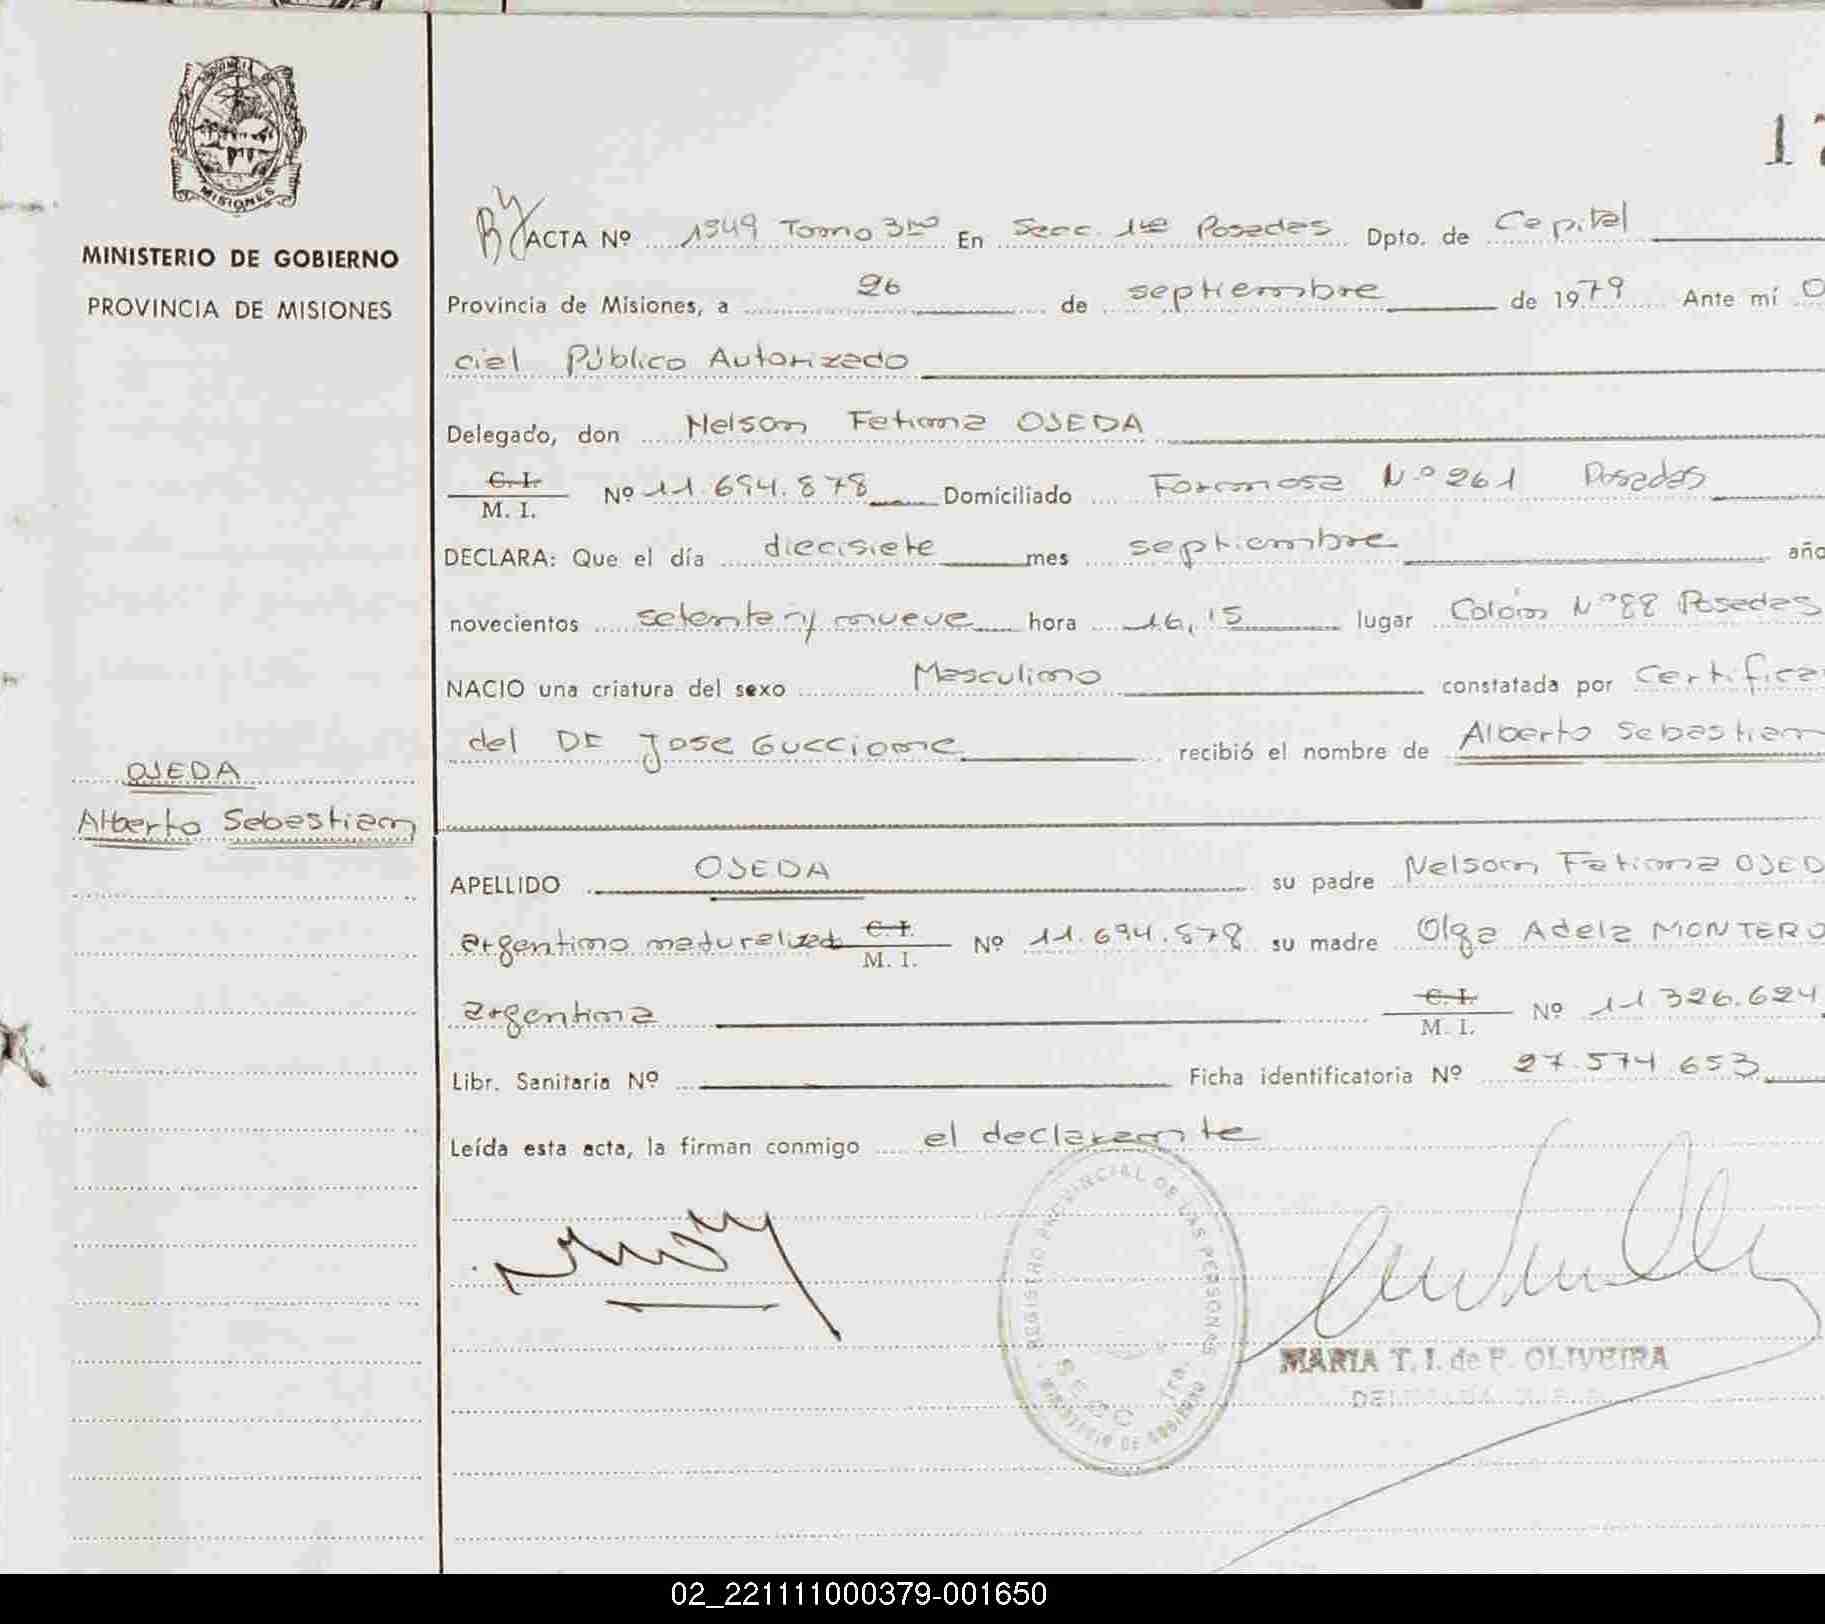 MISIONES
MINISTERIO DE GOBIERNO
PROVINCIA DE MISIONES
OJEDA
Alberto Sebastian
1
ACTA Nº 1349 Tomo 3ro En Secc. 1ra Posadas Dpto. de Capital
Provincia de Misiones, a 26 de septiembre de 1979 Ante mí O
cial Público Autorizado
Delegado, don Nelson Fatima OJEDA
C. I.
M. I. Nº 11.694.878 Domiciliado Formosa Nº 261 Posadas
DECLARA: Que el día diecisiete mes septiembre año
novecientos setenta y nueve hora 16,15 lugar Colón Nº 88 Posadas
NACIO una criatura del sexo Masculino constatada por Certifica
del DR Jose Guccione recibió el nombre de Alberto Sebastian
APELLIDO OJEDA su padre Nelson Fatima OJED
argentino naturalizado C. I. M. I. Nº 11.694.878 su madre Olga Adela MONTERO
argentina C. I. M. I. Nº 11.326.624
Libr. Sanitaria Nº Ficha identificatoria Nº 27.574.653
Leída esta acta, la firman conmigo el declarante
REGISTRO PROVINCIAL DE LAS PERSONAS
SECC 1ra.
MINISTERIO DE GOBIERNO
MARIA T. I. de F. OLIVEIRA
02_221111000379-001650